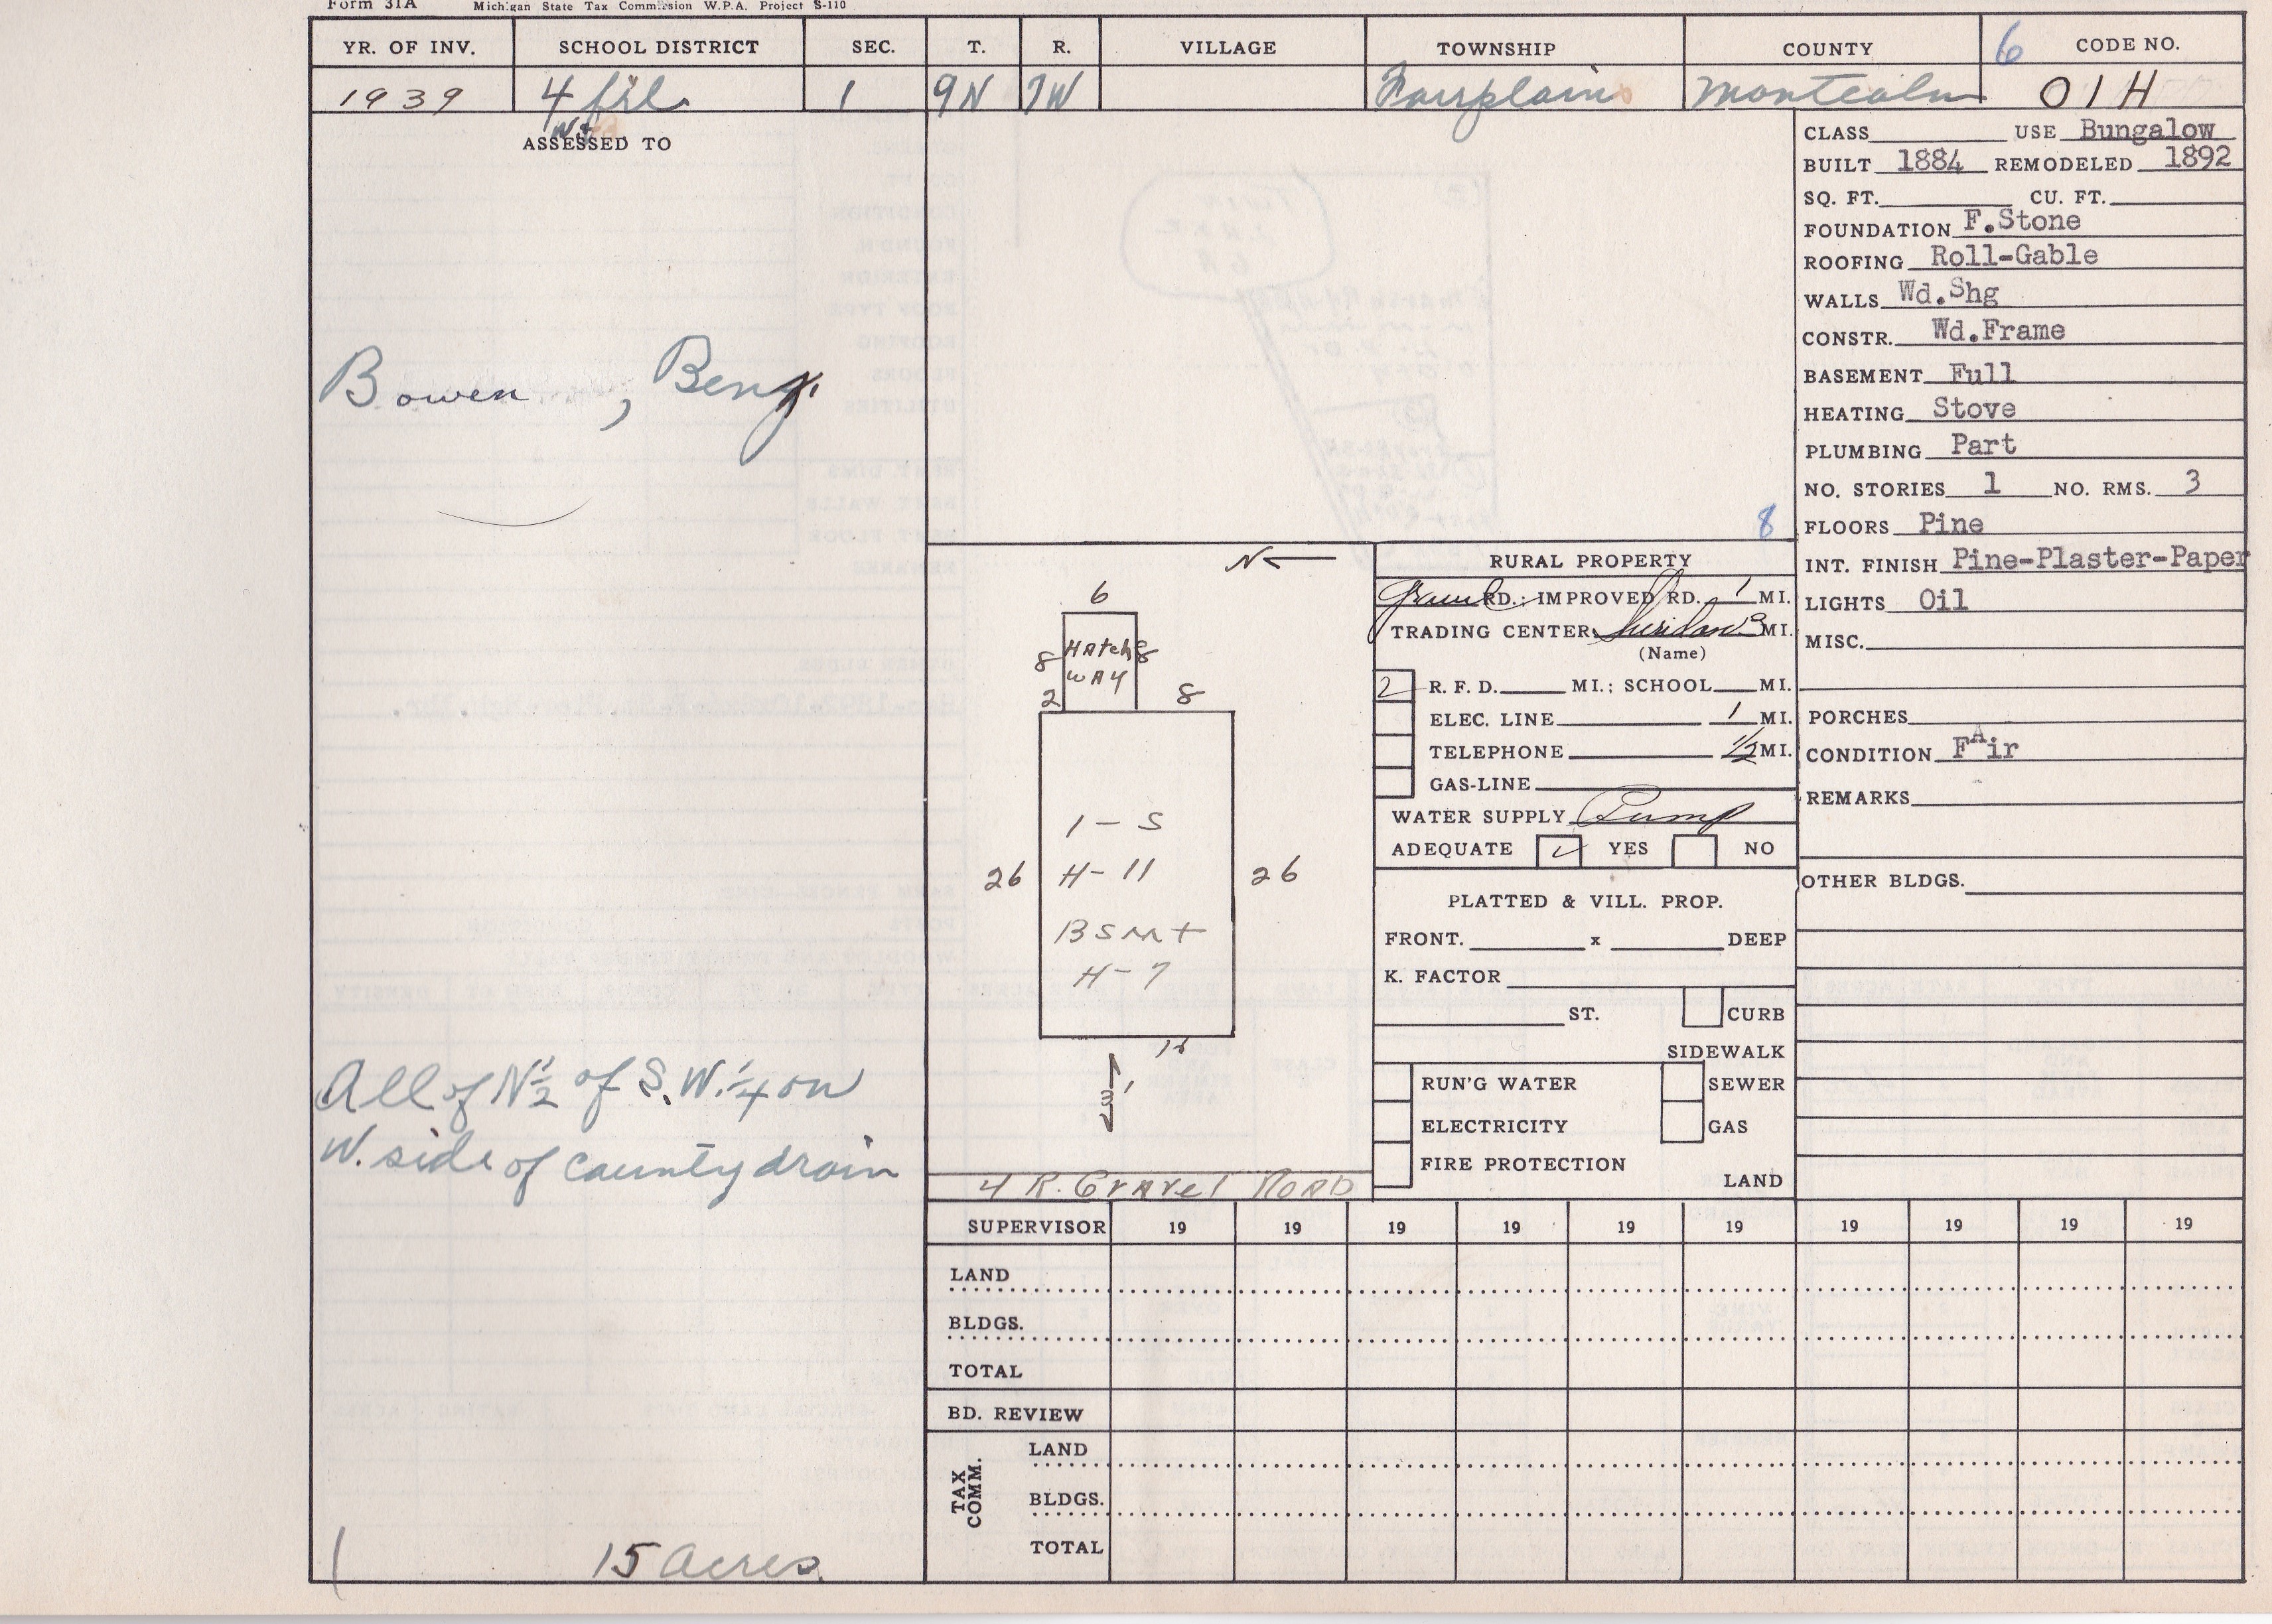 Form 31A Michigan State Tax Commission W.P.A. Project S-110
YR. OF INV. SCHOOL DISTRICT SEC. T. R. VILLAGE TOWNSHIP COUNTY 6 CODE NO.
1939 4 frl. 1 9N 7W Fairplains Montcalm 01H
ASSESSED TO
Bowen, Benj.
All of N½ of S.W.¼ on
W. side of county drain
15 acres
8
N
6
Hatch
way
8 8
2 8
1-S
H-11
26 26
Bsmt
H-7
4 R. Gravel Road
RURAL PROPERTY
Gravel RD.; IMPROVED RD. 1 MI.
TRADING CENTER Sheridan 3 MI.
(Name)
R. F. D. MI.; SCHOOL MI.
ELEC. LINE 1 MI.
TELEPHONE 1/2 MI.
GAS-LINE
WATER SUPPLY Pump
ADEQUATE ✓ YES NO
PLATTED & VILL. PROP.
FRONT. x DEEP
K. FACTOR
ST. CURB
SIDEWALK
RUN'G WATER SEWER
ELECTRICITY GAS
FIRE PROTECTION
LAND
CLASS USE Bungalow
BUILT 1884 REMODELED 1892
SQ. FT. CU. FT.
FOUNDATION F.Stone
ROOFING Roll-Gable
WALLS Wd.Shg
CONSTR. Wd.Frame
BASEMENT Full
HEATING Stove
PLUMBING Part
NO. STORIES 1 NO. RMS. 3
FLOORS Pine
INT. FINISH Pine-Plaster-Paper
LIGHTS Oil
MISC.
PORCHES
CONDITION FAir
REMARKS
OTHER BLDGS.
SUPERVISOR 19 19 19 19 19 19 19 19 19 19
LAND
BLDGS.
TOTAL
BD. REVIEW
TAX COMM.
LAND
BLDGS.
TOTAL